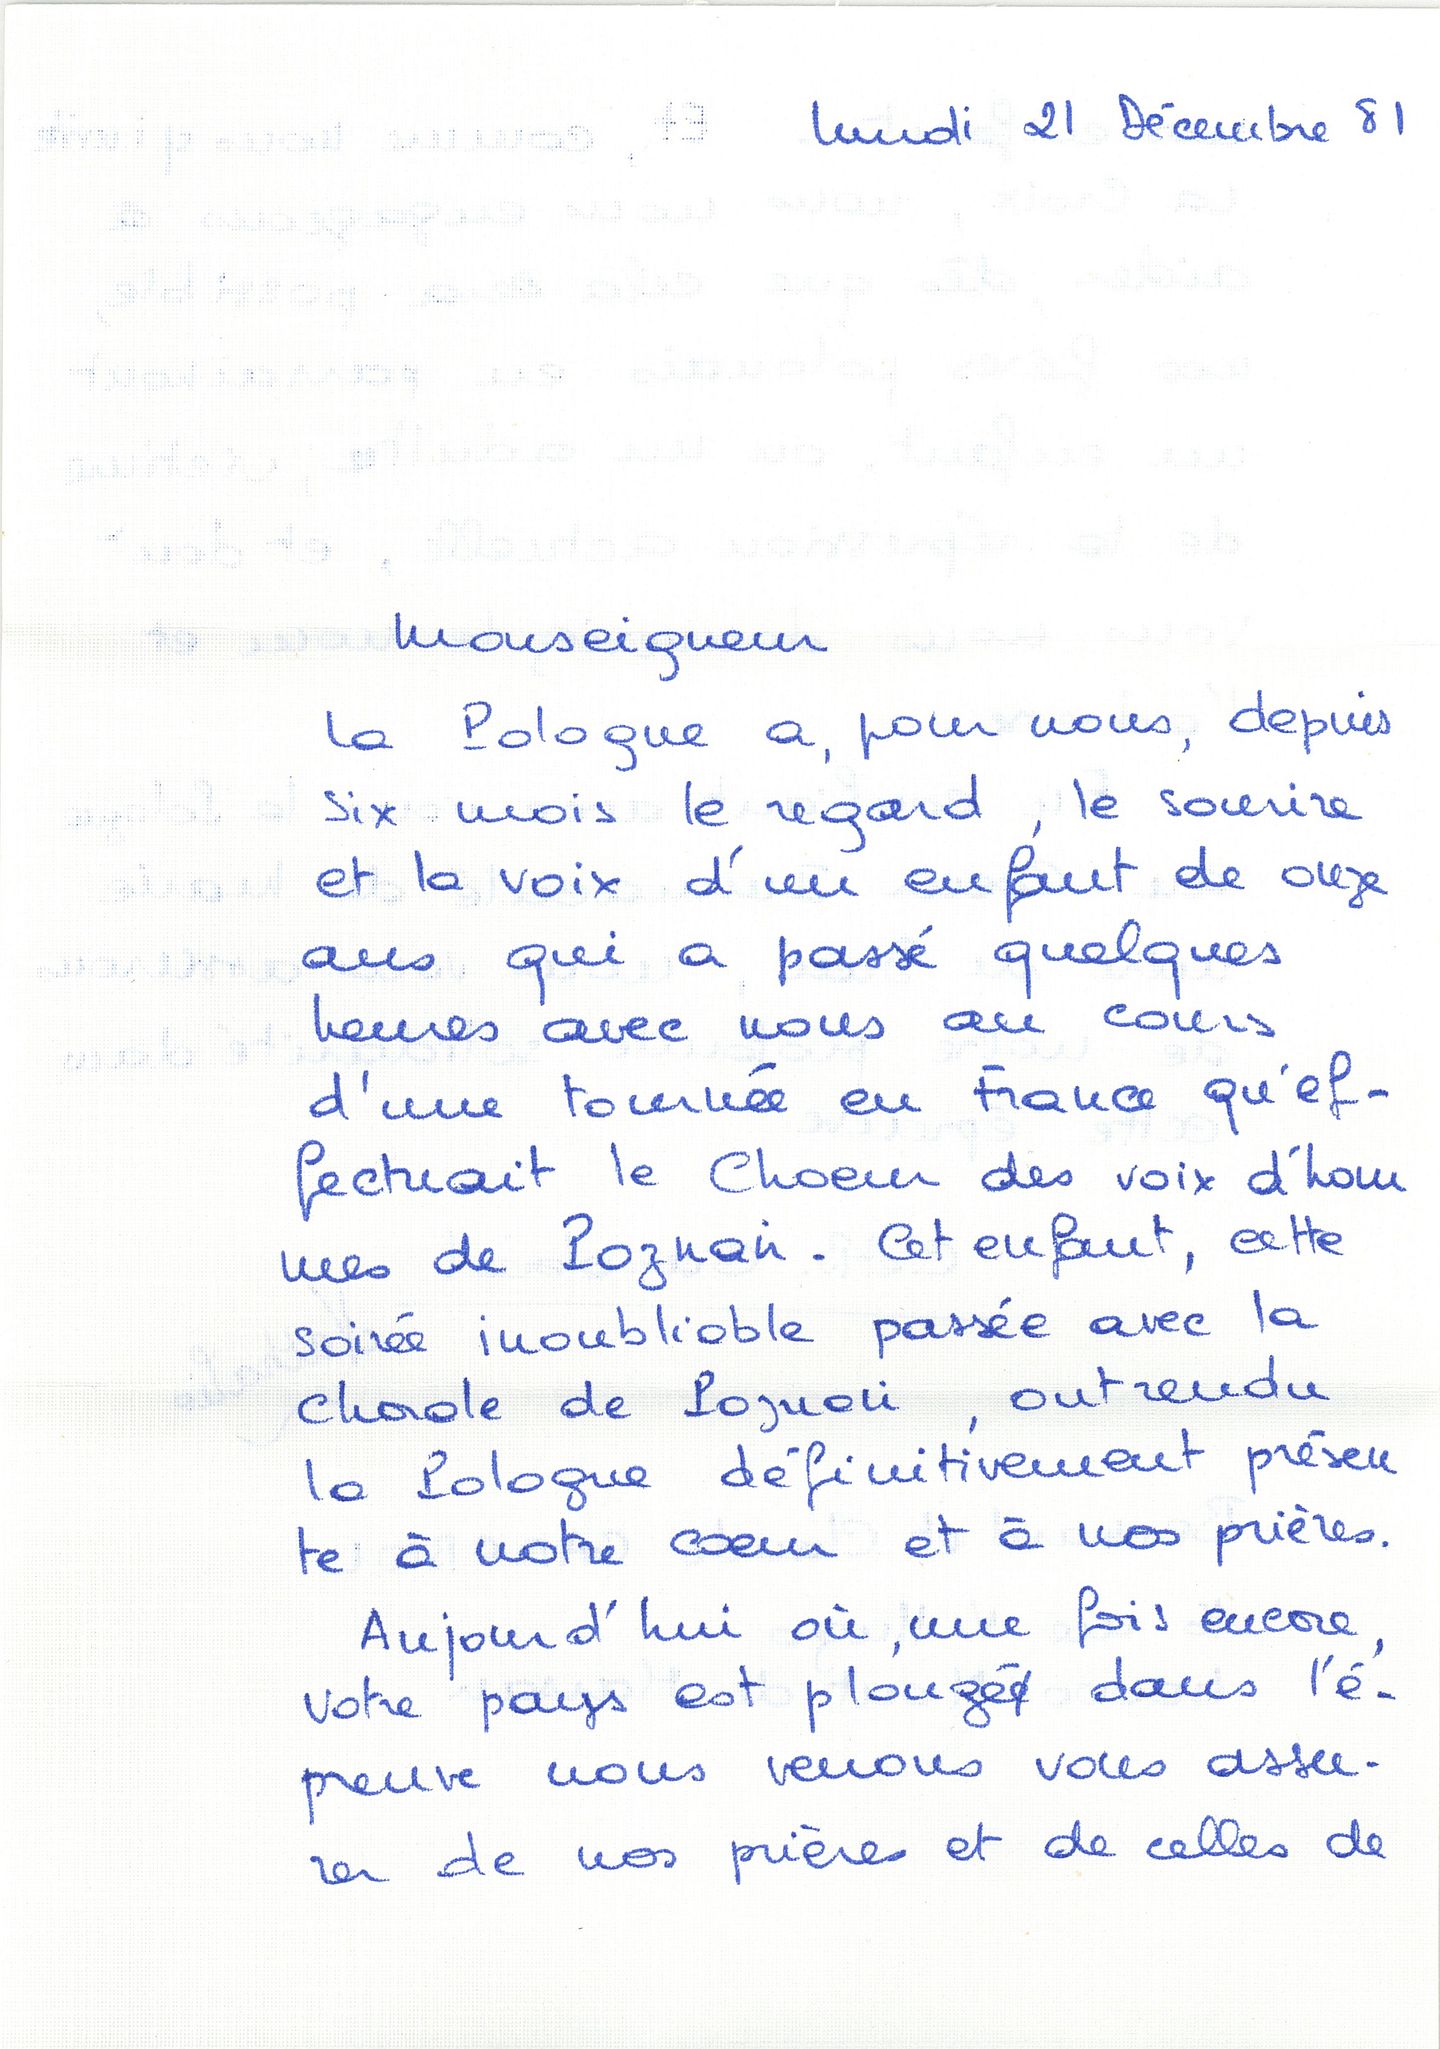 lundi 21 Décembre 81
Monseigneur
La Pologne a, pour nous, depuis
six mois le regard, le sourire
et la voix d'un enfant de onze
ans qui a passé quelques
heures avec nous au cours
d'une tournée en France qu'ef-
fectuait le Choeur des voix d'hom
mes de Poznań. Cet enfant, cette
soirée inoubliable passée avec la
chorale de Poznań, ont rendu
la Pologne définitivement présen
te à notre coeur et à nos prières.
Aujourd'hui où, une fois encore,
votre pays est plongé dans l'é-
preuve nous venons vous assu-
rer de nos prières et de celles de